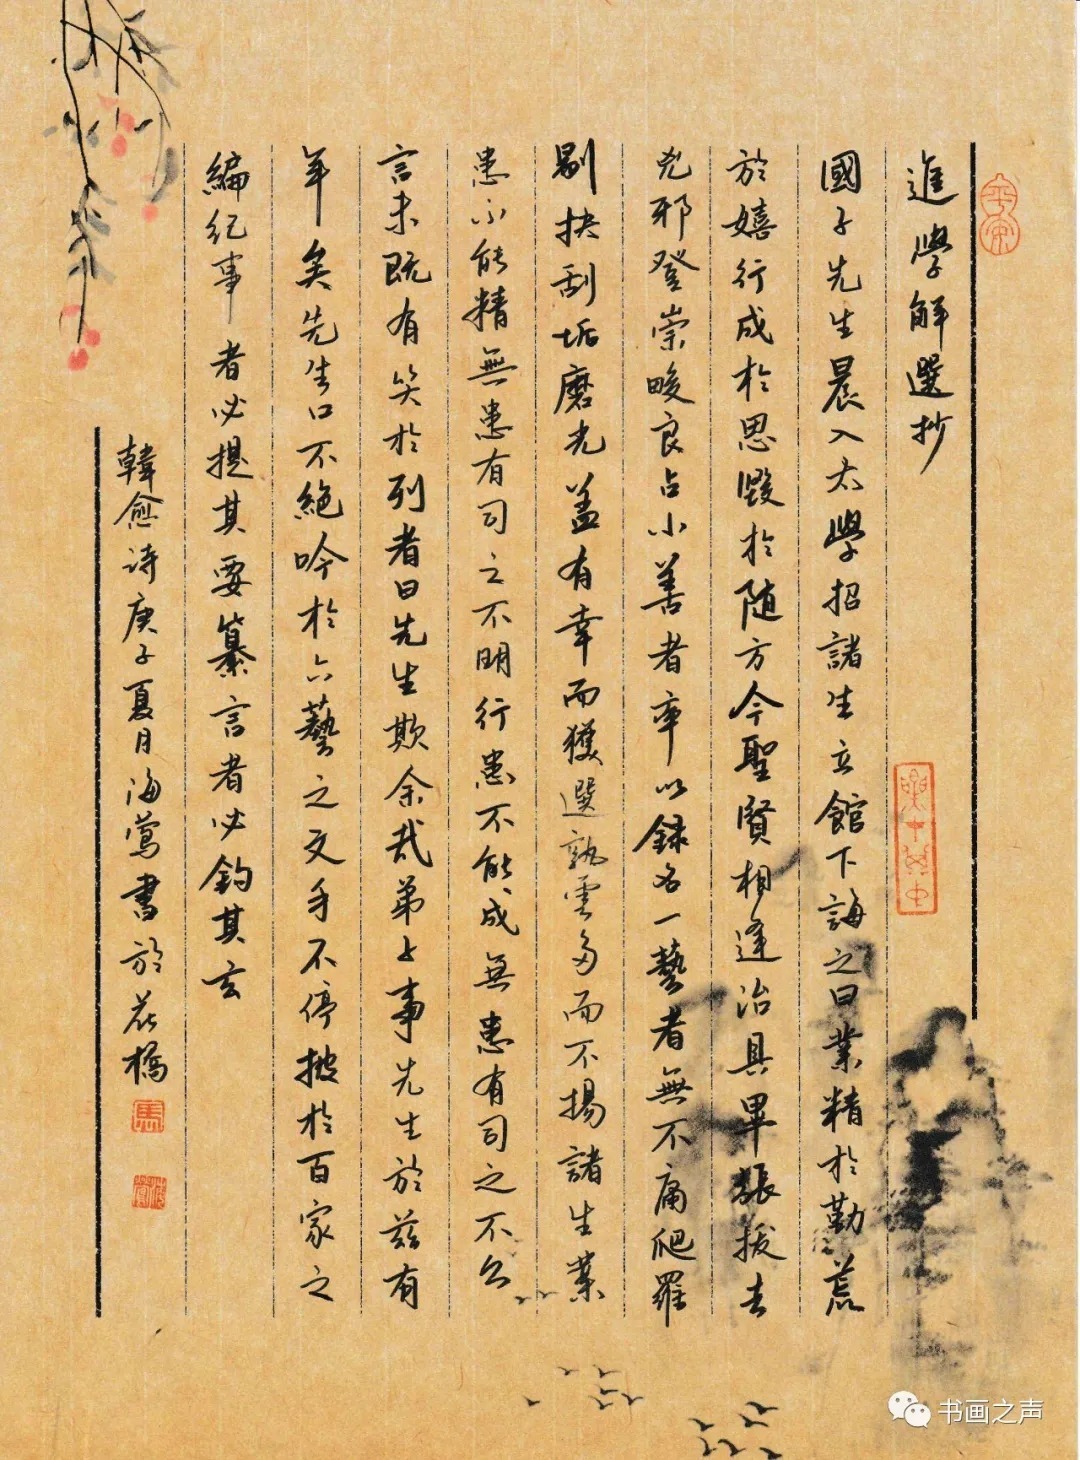 進學解選抄
國子先生晨入太學招諸生立館下誨之曰業精於勤荒
於嬉行成於思毀於随方今聖賢相逢治具畢張拔去
兇邪登崇畯良占小善者率以録名一藝者無不庸爬羅
剔抉刮垢磨光盖有幸而獲選孰雲多而不揚諸生業
患不能精無患有司之不明行患不能成無患有司之不公
言未既有笑於列者曰先生欺余哉弟子事先生於兹有
年矣先生口不絶吟於六藝之文手不停披於百家之
編纪事者必提其要纂言者必鈎其玄
韓愈诗庚子夏月海鶯書於花橋
平安
馬
书画之声